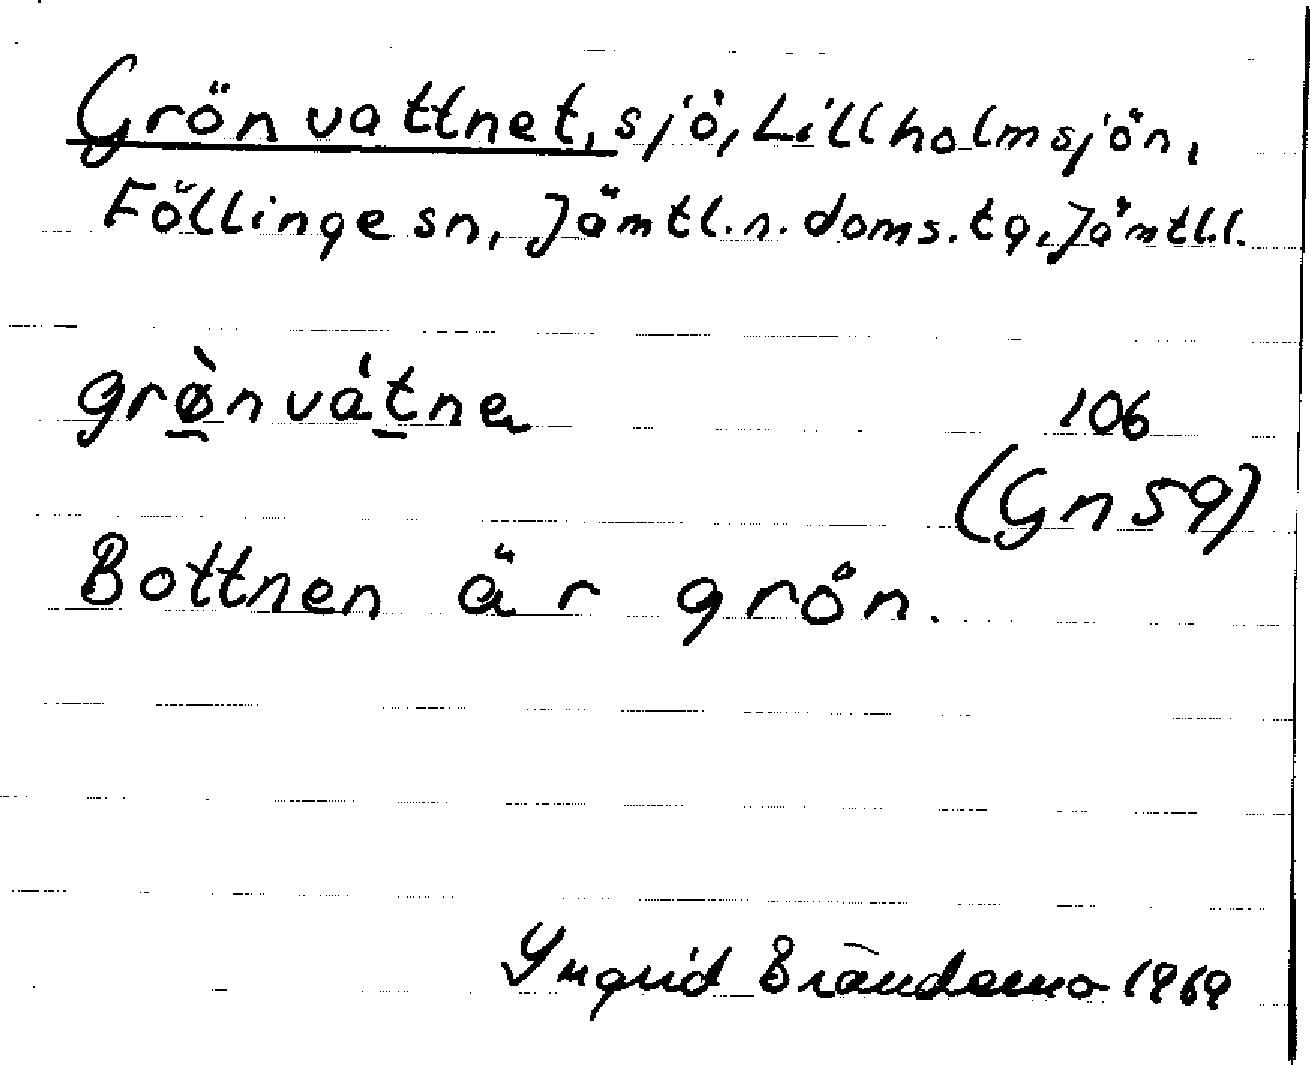 Grönvattnet, sjö, Lillholmsjön,
Föllinge sn, Jämtl. n. doms. tg, Jämtl. l.
grø̀nvátne
106
(Gn 59)
Bottnen är grön.
Ingrid Brändemo 1969